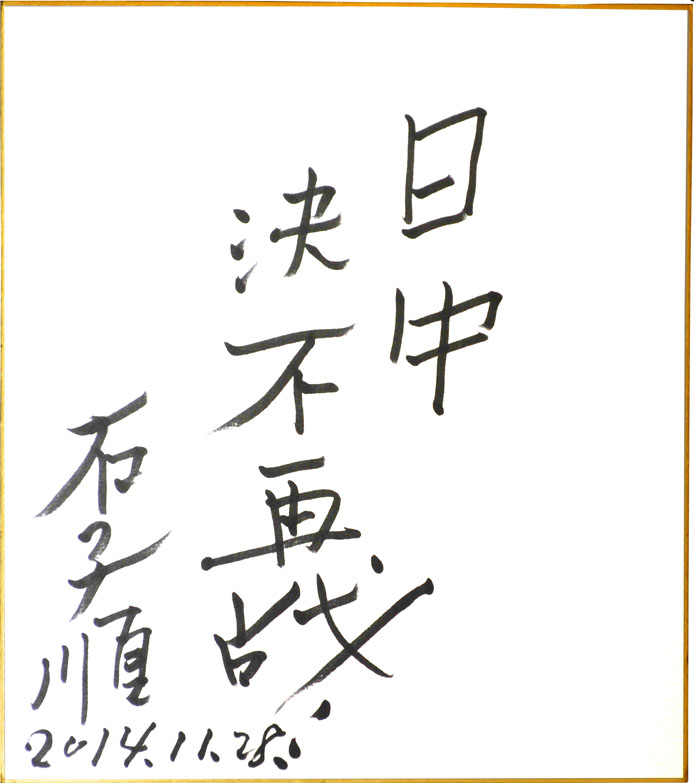 日中
決不再战
石子順
2014.11.28.